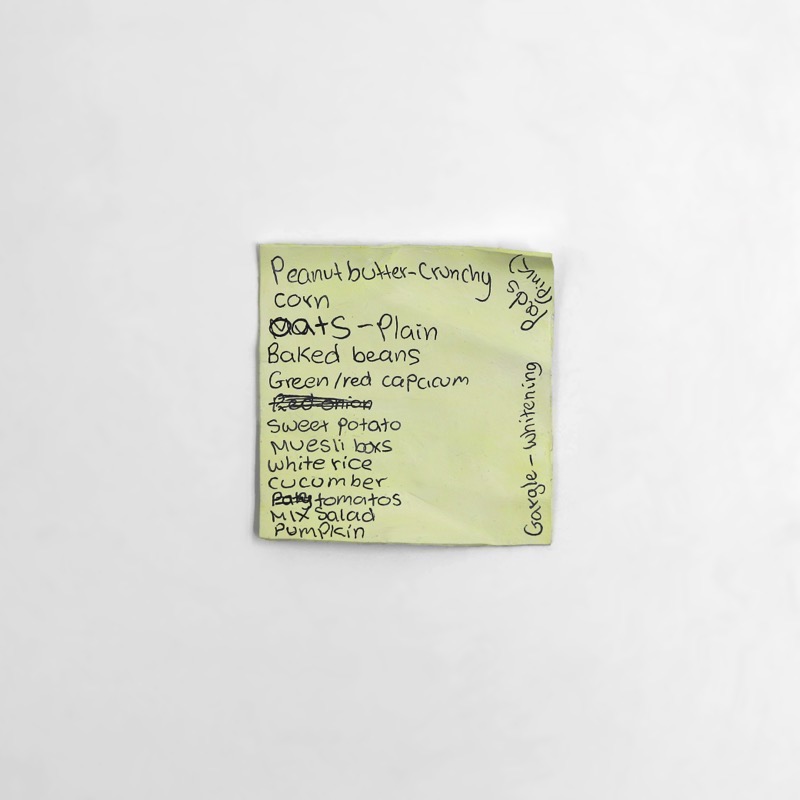 Peanut butter-Crunchy
corn
oats - Plain
Baked beans
Green/red capcicum
Red onion
sweet potato
Muesli boxs
white rice
cucumber
tomatos
Mix Salad
Pumpkin
Gargle - whitening
Pads
(Pink)